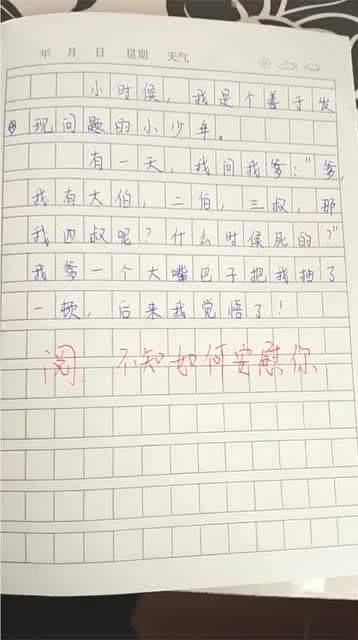 年 月 日 星期 天气
小时候，我是个善于发
现问题的小少年。
有一天，我问我爹："爹，
我有大伯，二伯，三叔，那
我四叔呢？什么时候死的？"
我爹一个大嘴巴子把我抽了
一顿，后来我觉悟了！
阅. 不知如何安慰你